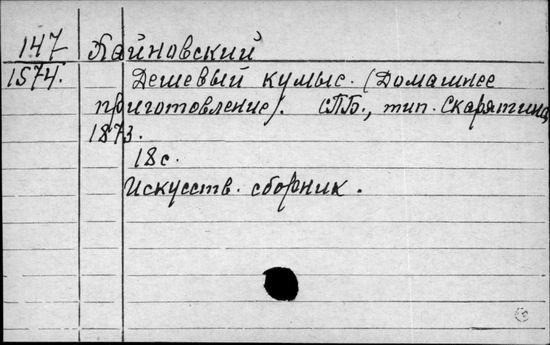 147 Кайновский
1574. Дешевый кумыс. (Домашнее
приготовление). СПБ., тип. Скарятина,
1873.
18 с.
Искусств. сборник.